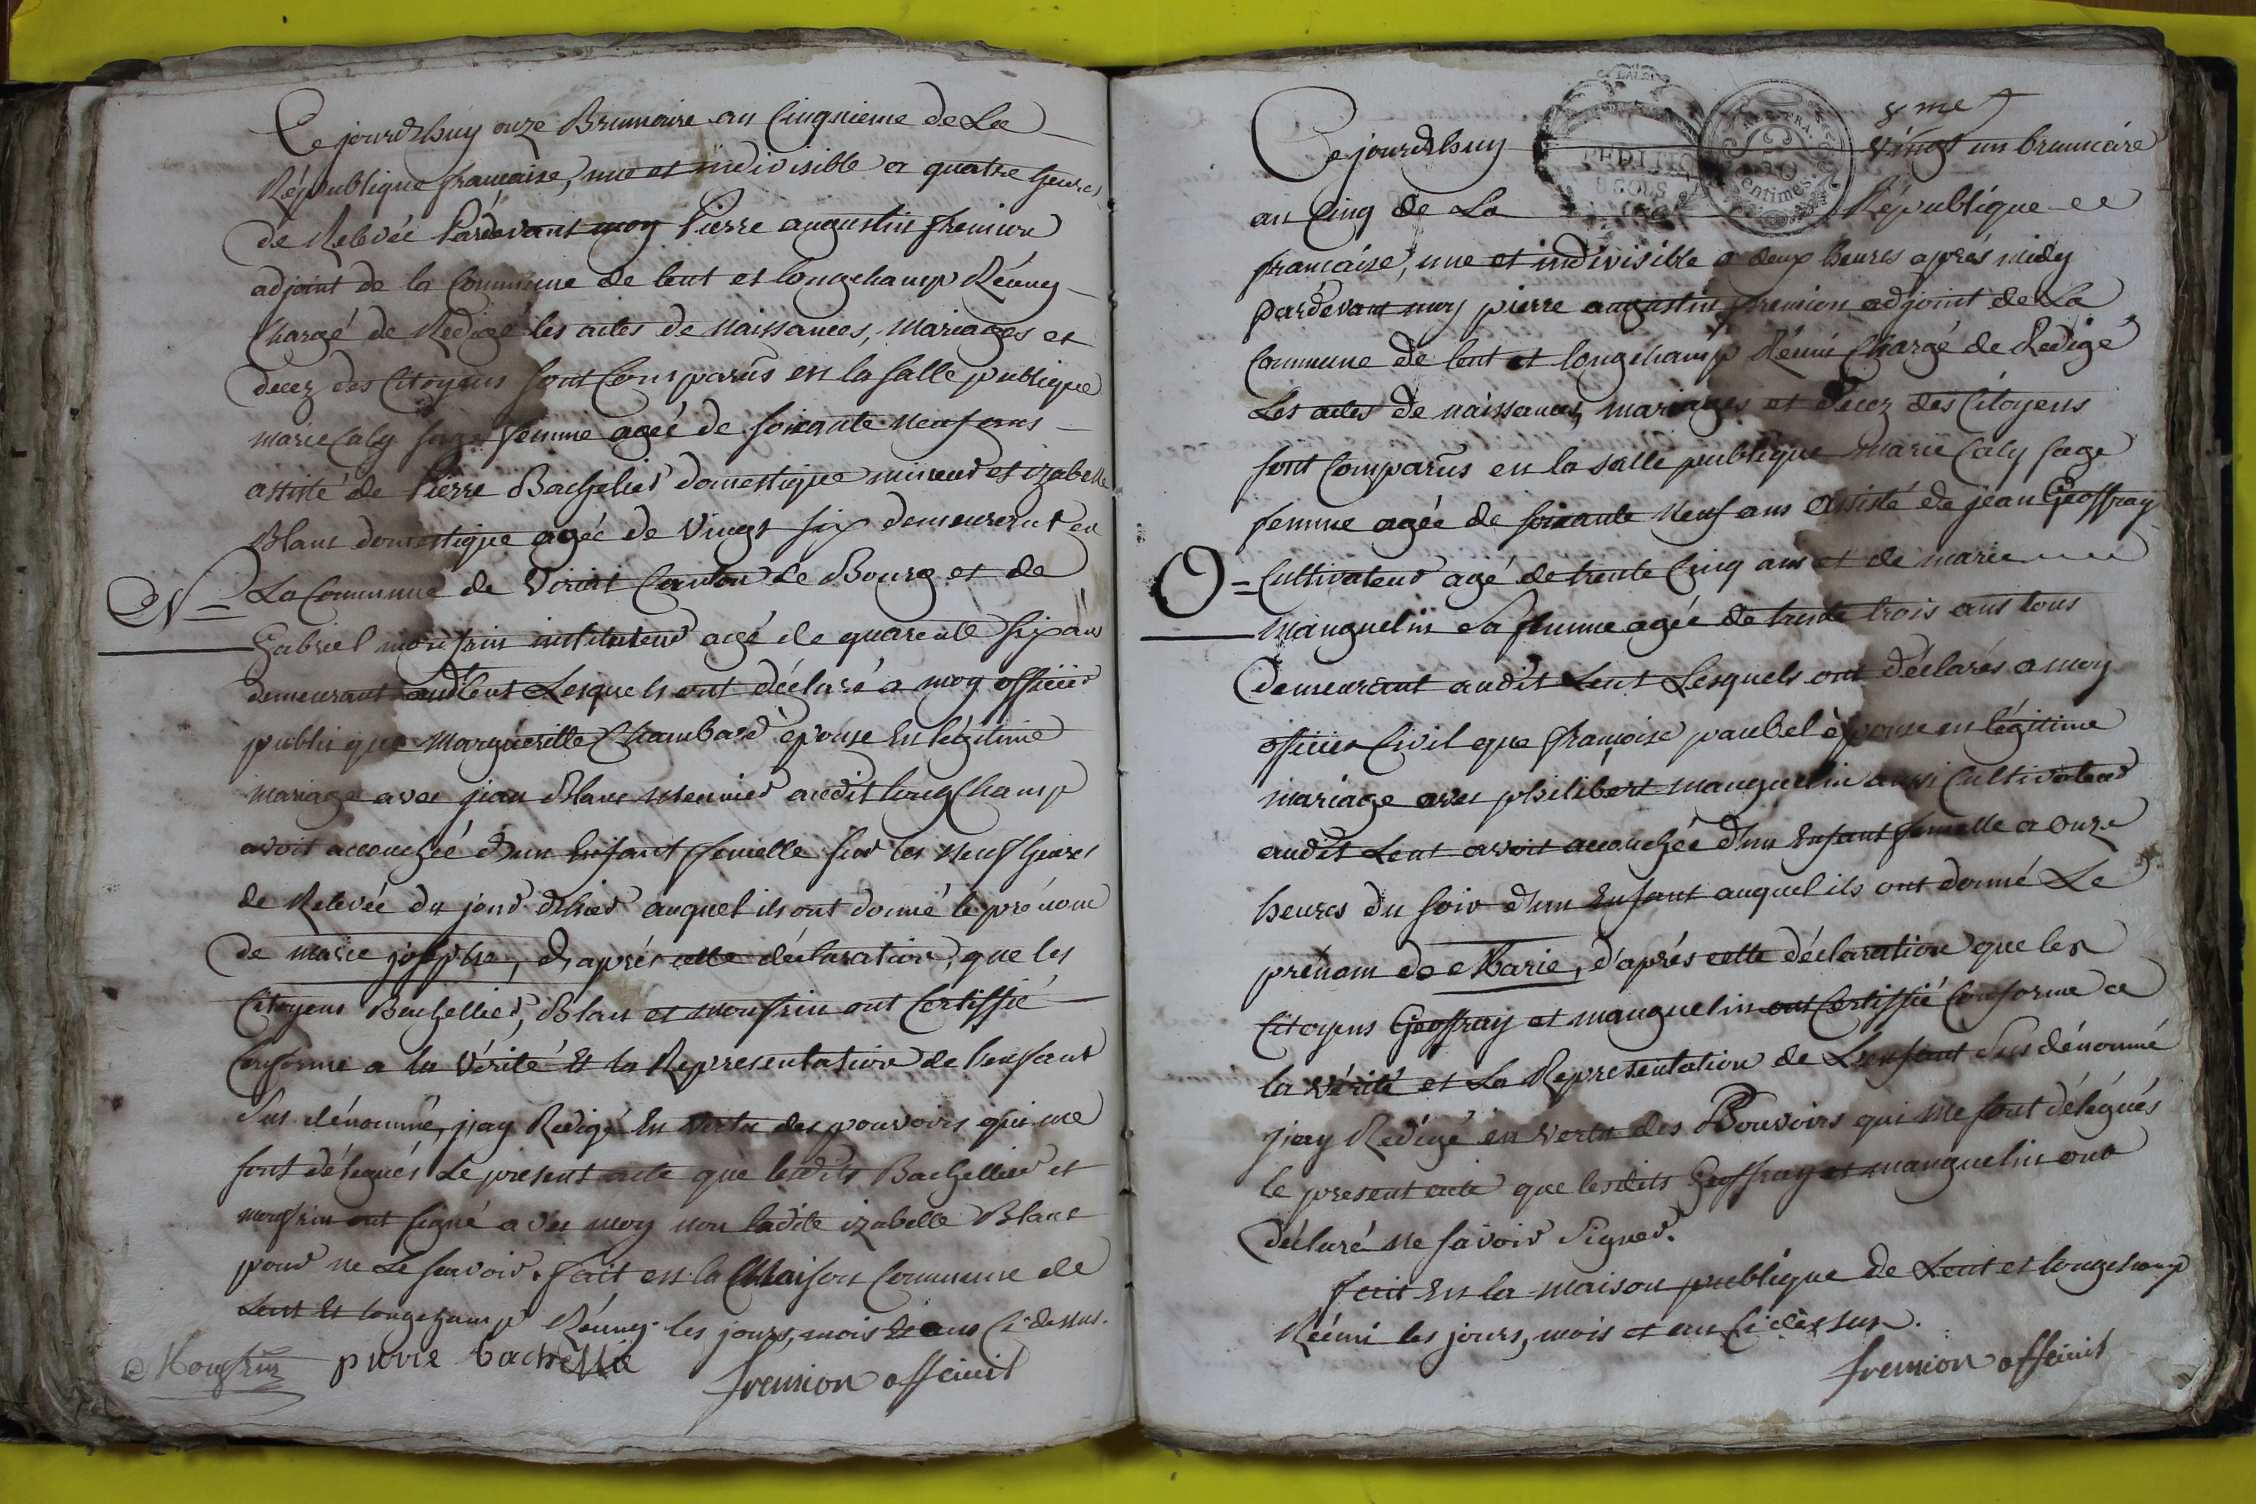 Ce jourdhuy onze Brumaire an Cinqnieme de La
République française, une et indivisible a quatre heures
de Relevée Pardevant moy Pierre augustin fremion
adjoint de la Commune de lent et longchamp Réuney
Chargé de Redigé les actes de naissances, mariages et
decez des Citoyens sont Comparûs en la salle publique
marie Caly sage femme agée de soixante neuf ans
assisté de Pierre Bachelier domestique mineur et izabelle
Blanc domestique agée de vingt six demeurant en
N= La Commune de Viriat Canton de Bourg et de
Gabriel monfrin instituteur agé de quarente six ans
demeurant audit lent Lesquels ont déclaré a moy officier
public que Marguerille Chambard épouse En légitime
mariage avec jean Blanc meunier audit longchamp
avoit accouchée d'un Enfant femelle sur les neuf heures
de Relevée du jour d'hier auquel ils ont donné le prénom
de marie josephe, d'aprés cette déclaration, que les
Citoyens Bachellier, Blanc et monfrin ont Certiffié
Conforme a la Vérité Et la Representation de l'enfant
sus dénommé, j'ay Redigé En Vertu des pouvoirs qui me
sont délegués Le present acte que lesdits Bachellier et
monfrin ont signé avec moy non ladite izabelle Blanc
pour ne Le savoir. fait en la Maison Commune de
Lent Et longchamp Réuney les jours, mois Et an Ci-dessus.
Monfrin pierre bachellie
fremion officiel
EXPEDITION
8 SOLS
50 Centimes
8me
Ce jourdhuy vingt un brumaire
an Cinq de La République
française, une et indivisible a deux heures aprés midy
pardevant moy pierre augustin fremion adjoint de La
Commune de lent et longchamp Réuni Chargé de Redigé
Les actes de naissances, mariages et decez des Citoyens
sont Comparûs en la salle publique marie Caly sage
femme agée de soixante neuf ans assisté de jean Geoffray
O= Cultivateur agé de trente Cinq ans et de marie
manguelin sa femme agée de trente trois ans tous
demeurant audit Lent Lesquels ont déclarés a moy
officier Civil que françoise paubel épouse en légitime
mariage avec philibert manguelin aussi Cultivateur
audit Lent avoit accouchée d'un Enfant femelle a onze
heures du soir d'un Enfant auquel ils ont donné Le
prénom de Marie, d'aprés cette déclaration que les
Citoyens Geoffray et manguelin ont Certiffié Conforme a
la vérité et La Representation de L'enfant sus dénommé
j'ay Redigé en vertu des Pouvoirs qui me sont délegués
le present acte que lesdits Geoffray et manguelin ont
déclaré ne savoir signer.
fait En la maison publique de Lent et longchamp
Réuni les jours, mois et an Ci dessus.
fremion officiel